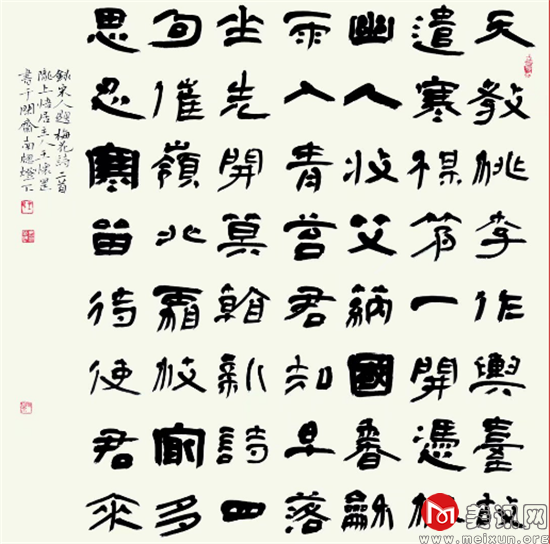 天教桃李作輿臺故
遣寒梅第一開憑
幽人收艾蒳國香龢
雨入青苔君知早落
坐先開莫新詩
句催嶺北霜枝最多
思忍寒留待使君來
錄宋人題梅花詩二首
隴上悟居主人王墨
書于齋南窗燈下
美讯网
www.meixun.org